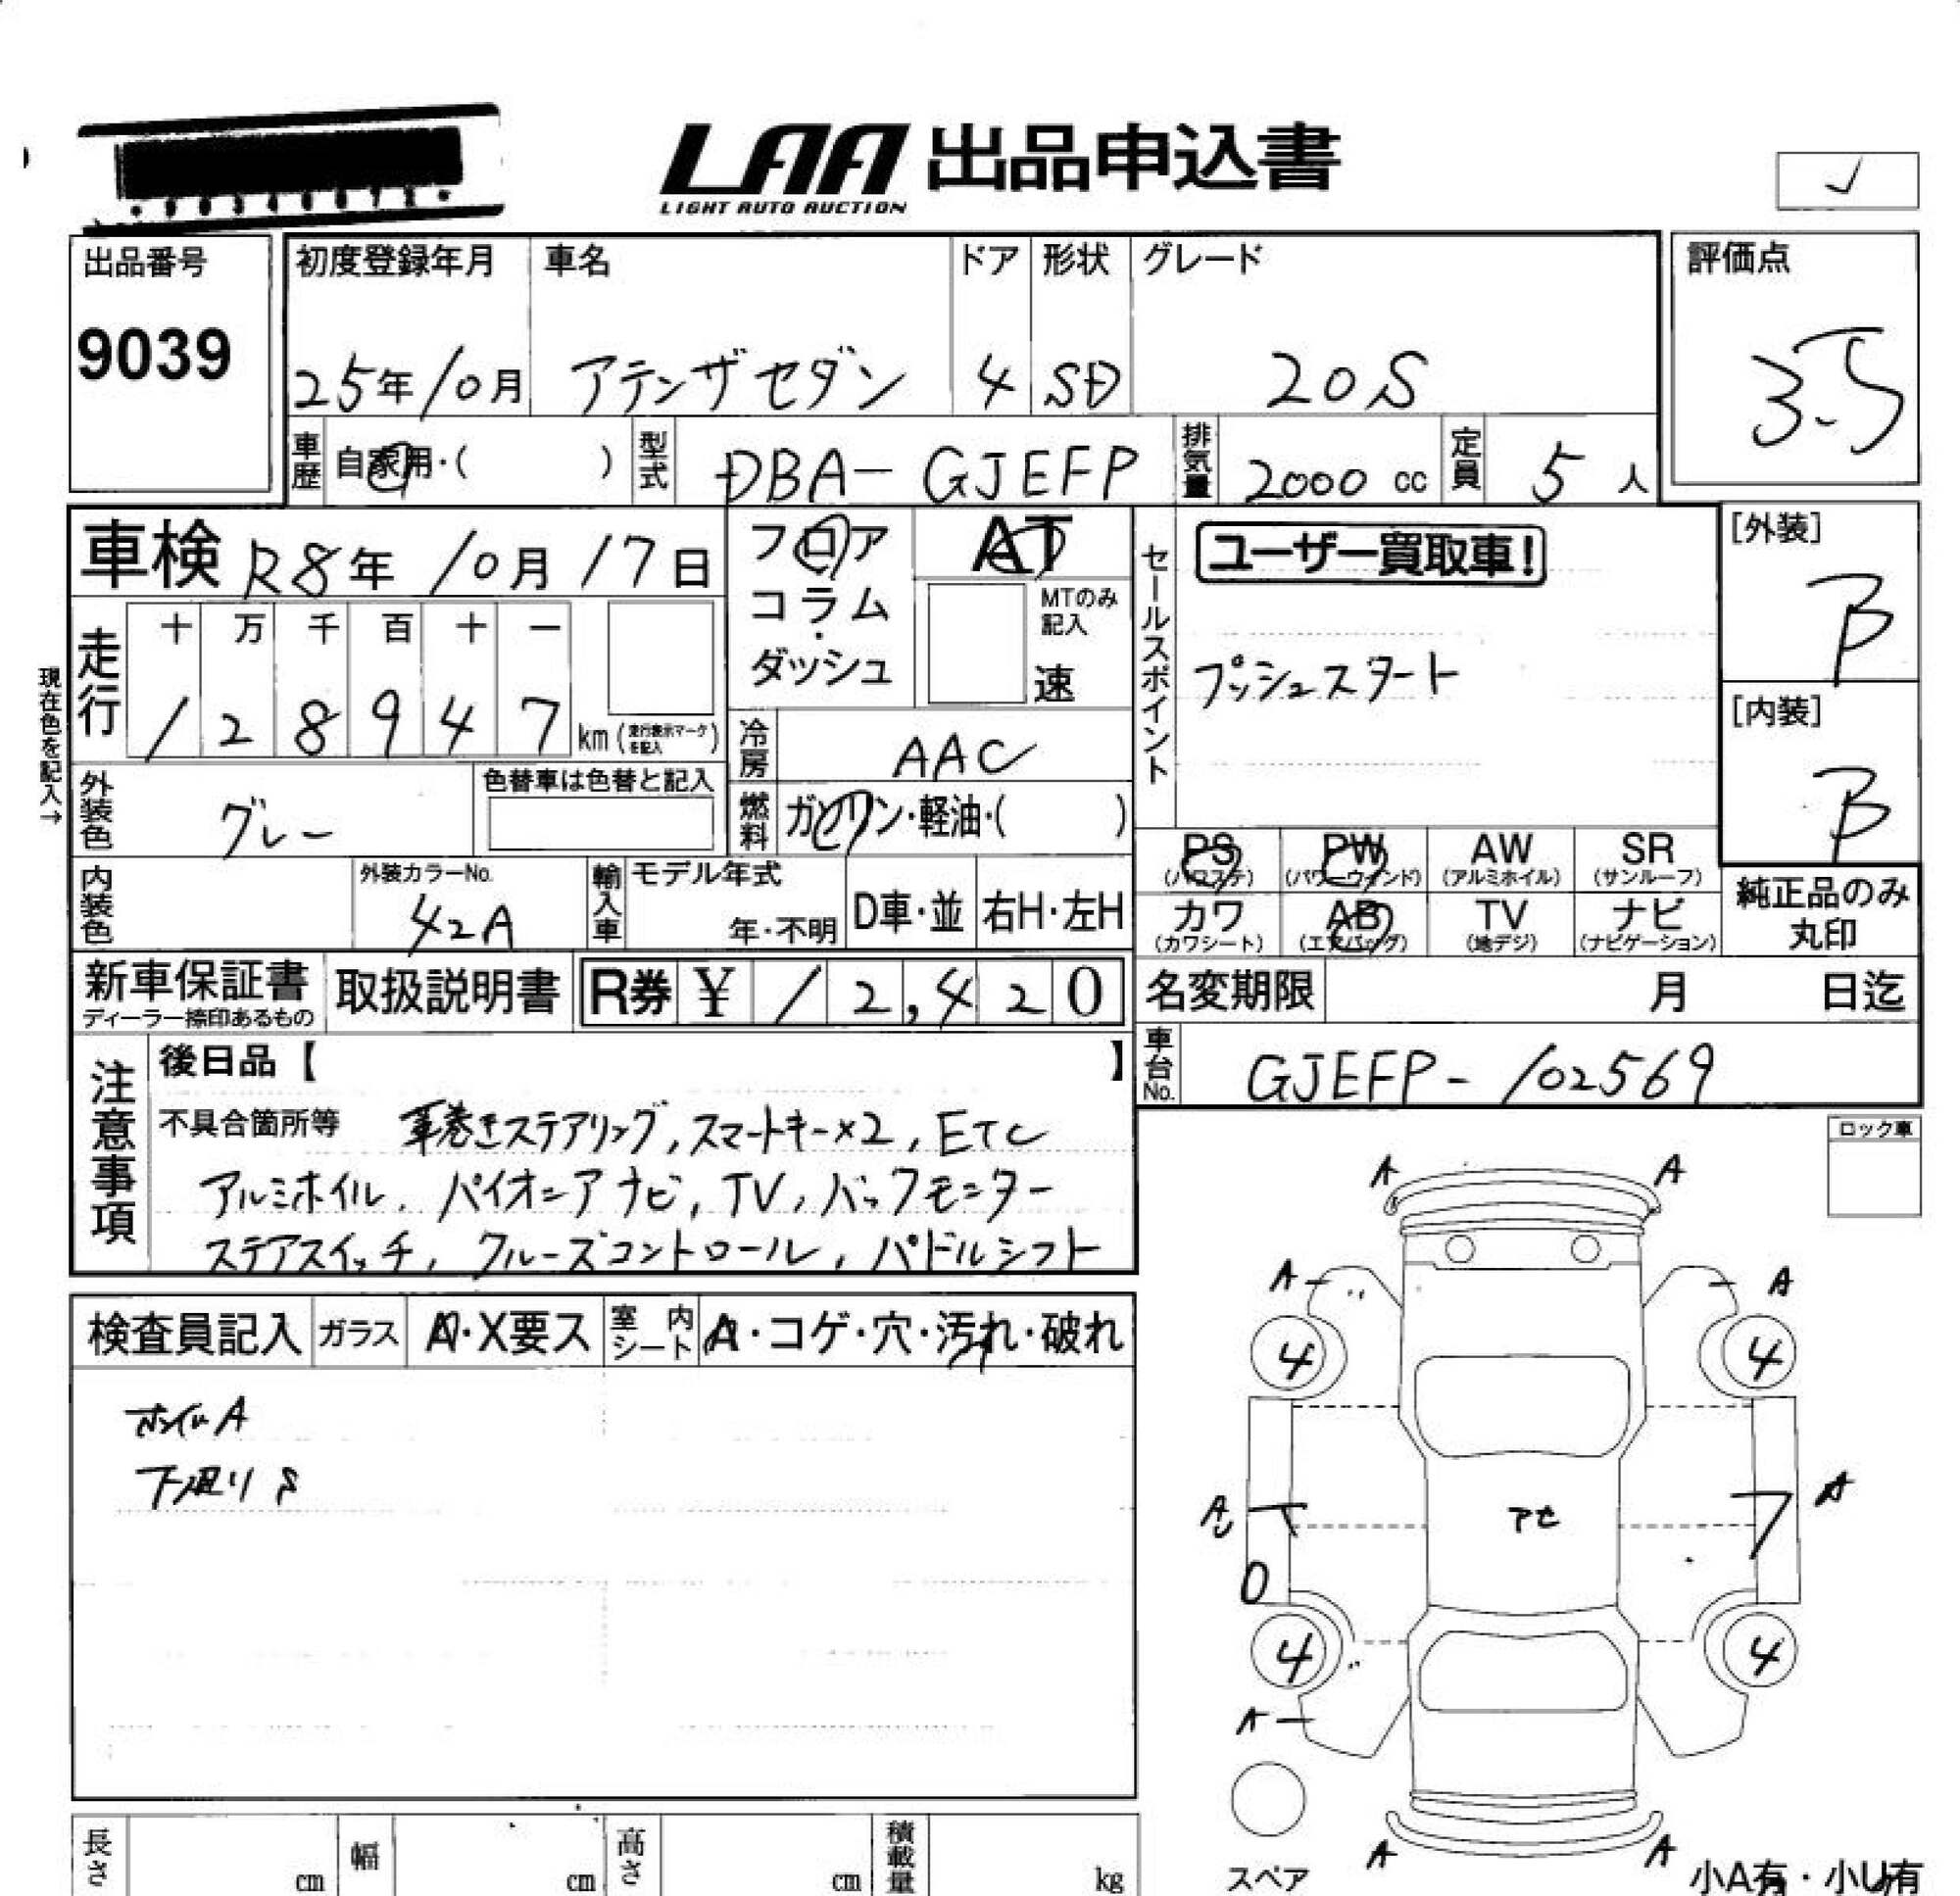 LAA 出品申込書
LIGHT AUTO AUCTION
✓
出品番号
9039
初度登録年月 車名 ドア 形状 グレード
25年10月 アテンザセダン 4 SD 20S
評価点
3.5
車歴 自家用・( ) 型式 DBA-GJEFP 排気量 2000 cc 定員 5 人
車検 R8年 10月 17日
フロア AT
コラム・
ダッシュ
MTのみ記入
速
走行 十 万 千 百 十 一
1 2 8 9 4 7 km (走行表示マークを記入)
現在色を記入→
冷房 AAC
燃料 ガソリン・軽油・( )
外装色 グレー 色替車は色替と記入
内装色 外装カラーNo. 42A 輸入車 モデル年式 年・不明 D車・並 右H・左H
セールスポイント
ユーザー買取車!
プッシュスタート
[外装]
B
[内装]
B
PS (パワステ) PW (パワーウィンド) AW (アルミホイル) SR (サンルーフ)
カワ (カワシート) AB (エアバッグ) TV (地デジ) ナビ (ナビゲーション)
純正品のみ
丸印
新車保証書 ディーラー捺印あるもの 取扱説明書 R券 ¥ 12,420
名変期限 月 日迄
車台No. GJEFP-102569
注意事項
後日品【 】
不具合箇所等 革巻きステアリング, スマートキー×2, ETC
アルミホイル, パイオニアナビ, TV, バックモニター
ステアスイッチ, クルーズコントロール, パドルシフト
ロック車
検査員記入 ガラス A・X要ス 室内シート A・コゲ・穴・汚れ・破れ
ホイルA
下廻りS
A A
A A
4 4
A A
アセ
4 4
A
A A
スペア
小A有・小U有
長さ cm 幅 cm 高さ cm 積載量 kg